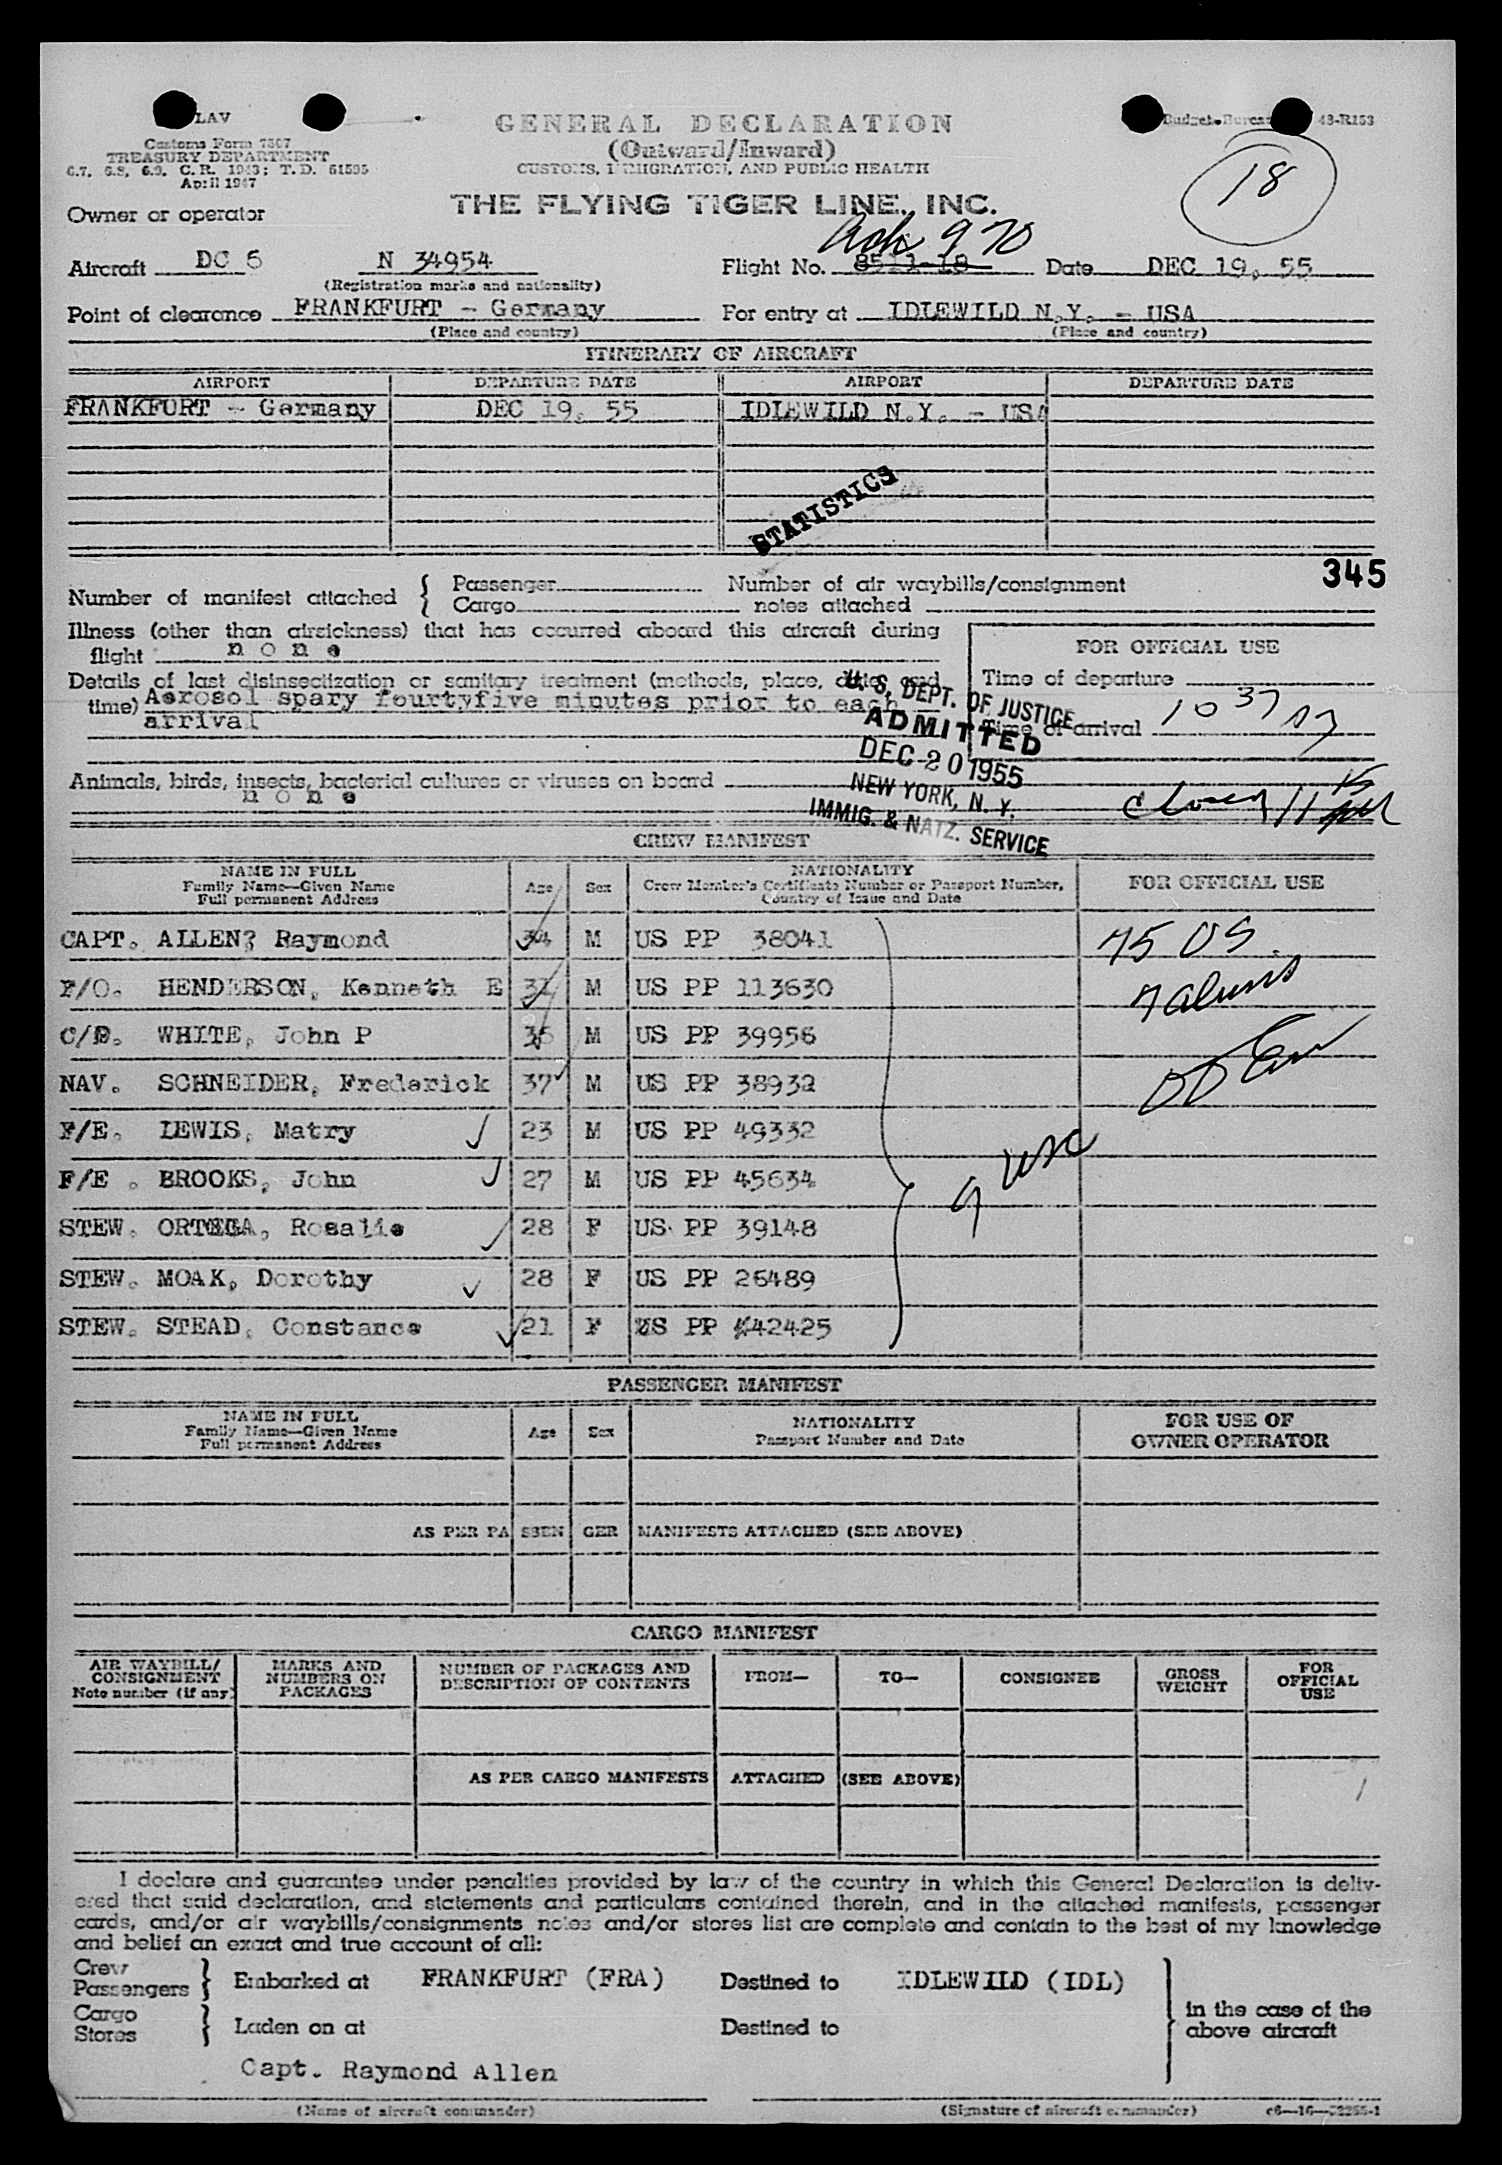 LAV
Customs Form 7507
TREASURY DEPARTMENT
6.7, 6.8, 6.9. C. R. 1943; T. D. 51595
April 1947
GENERAL DECLARATION
(Outward/Inward)
CUSTOMS, IMMIGRATION, AND PUBLIC HEALTH
Budget Bureau 43-R153
18
Owner or operator
THE FLYING TIGER LINE, INC.
970
Aircraft DC 6 N 34954 Flight No. 8511-18 Date DEC 19, 55
(Registration marks and nationality)
Point of clearance FRANKFURT - Germany For entry at IDLEWILD N.Y. - USA
(Place and country) (Place and country)
ITINERARY OF AIRCRAFT
AIRPORT DEPARTURE DATE AIRPORT DEPARTURE DATE
FRANKFURT - Germany DEC 19, 55 IDLEWILD N.Y. - USA
STATISTICS
345
Number of manifest attached { Passenger Number of air waybills/consignment
{ Cargo notes attached
Illness (other than airsickness) that has occurred aboard this aircraft during
flight n o n e
FOR OFFICIAL USE
Details of last disinsectization or sanitary treatment (methods, place, date, and
time) Aerosol spary fourtyfive minutes prior to each
arrival
Time of departure
Time of arrival 10 37
U. S. DEPT. OF JUSTICE
ADMITTED
DEC 20 1955
NEW YORK, N. Y.
IMMIG. & NATZ. SERVICE
Animals, birds, insects, bacterial cultures or viruses on board
n o n e
closed 11 15
CREW MANIFEST
NAME IN FULL
Family Name—Given Name
Full permanent Address
Age Sex
NATIONALITY
Crew Member's Certificate Number or Passport Number,
Country of Issue and Date
FOR OFFICIAL USE
CAPT. ALLEN? Raymond 34 M US PP 38041
75 US
F/O. HENDERSON, Kenneth E 31 M US PP 113630
7 aliens
C/P. WHITE, John P 36 M US PP 39956
NAV. SCHNEIDER, Frederick 37 M US PP 38932
F/E. LEWIS, Matry 23 M US PP 49332
9 usc
F/E . BROOKS, John 27 M US PP 45634
STEW. ORTEGA, Rosalie 28 F US PP 39148
STEW. MOAK, Dorothy 28 F US PP 26489
STEW. STEAD, Constance 21 F US PP 42425
PASSENGER MANIFEST
NAME IN FULL
Family Name—Given Name
Full permanent Address
Age Sex
NATIONALITY
Passport Number and Date
FOR USE OF
OWNER OPERATOR
AS PER PASSENGER MANIFESTS ATTACHED (SEE ABOVE)
CARGO MANIFEST
AIR WAYBILL/
CONSIGNMENT
Note number (if any)
MARKS AND
NUMBERS ON
PACKAGES
NUMBER OF PACKAGES AND
DESCRIPTION OF CONTENTS
FROM—
TO—
CONSIGNEE
GROSS
WEIGHT
FOR
OFFICIAL
USE
AS PER CARGO MANIFESTS ATTACHED (SEE ABOVE)
I declare and guarantee under penalties provided by law of the country in which this General Declaration is deliv-
ered that said declaration, and statements and particulars contained therein, and in the attached manifests, passenger
cards, and/or air waybills/consignments notes and/or stores list are complete and contain to the best of my knowledge
and belief an exact and true account of all:
Crew
Passengers } Embarked at FRANKFURT (FRA) Destined to IDLEWILD (IDL)
Cargo
Stores } Laden on at Destined to
in the case of the
above aircraft
Capt. Raymond Allen
(Name of aircraft commander) (Signature of aircraft commander)